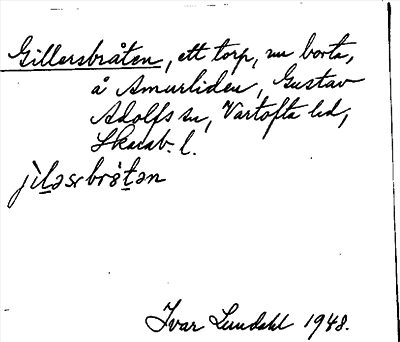 Gillersbråten, ett torp, nu borta,
å Amurliden, Gustav
Adolfs sn, Vartofta hd,
Skarab. l.
jìləsrbrò̀tən
Ivar Lundahl 1948.